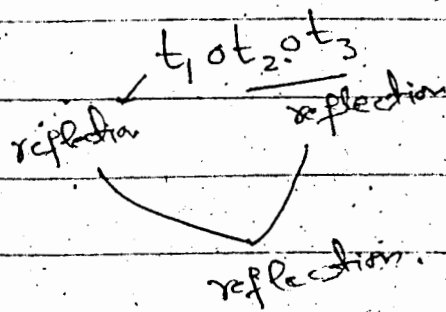 t₁ o t₂ o t₃
reflection reflection
reflection.